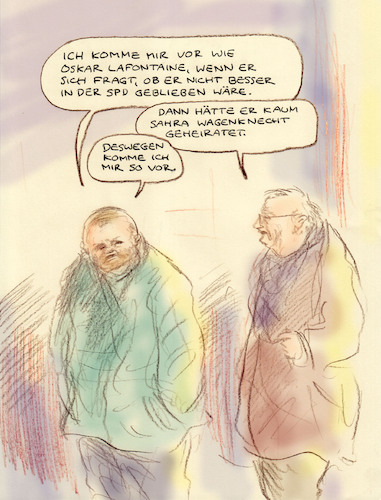 ICH KOMME MIR VOR WIE
OSKAR LAFONTAINE, WENN ER
SICH FRAGT, OB ER NICHT BESSER
IN DER SPD GEBLIEBEN WÄRE.
DANN HÄTTE ER KAUM
SAHRA WAGENKNECHT
GEHEIRATET.
DESWEGEN
KOMME ICH
MIR SO VOR.